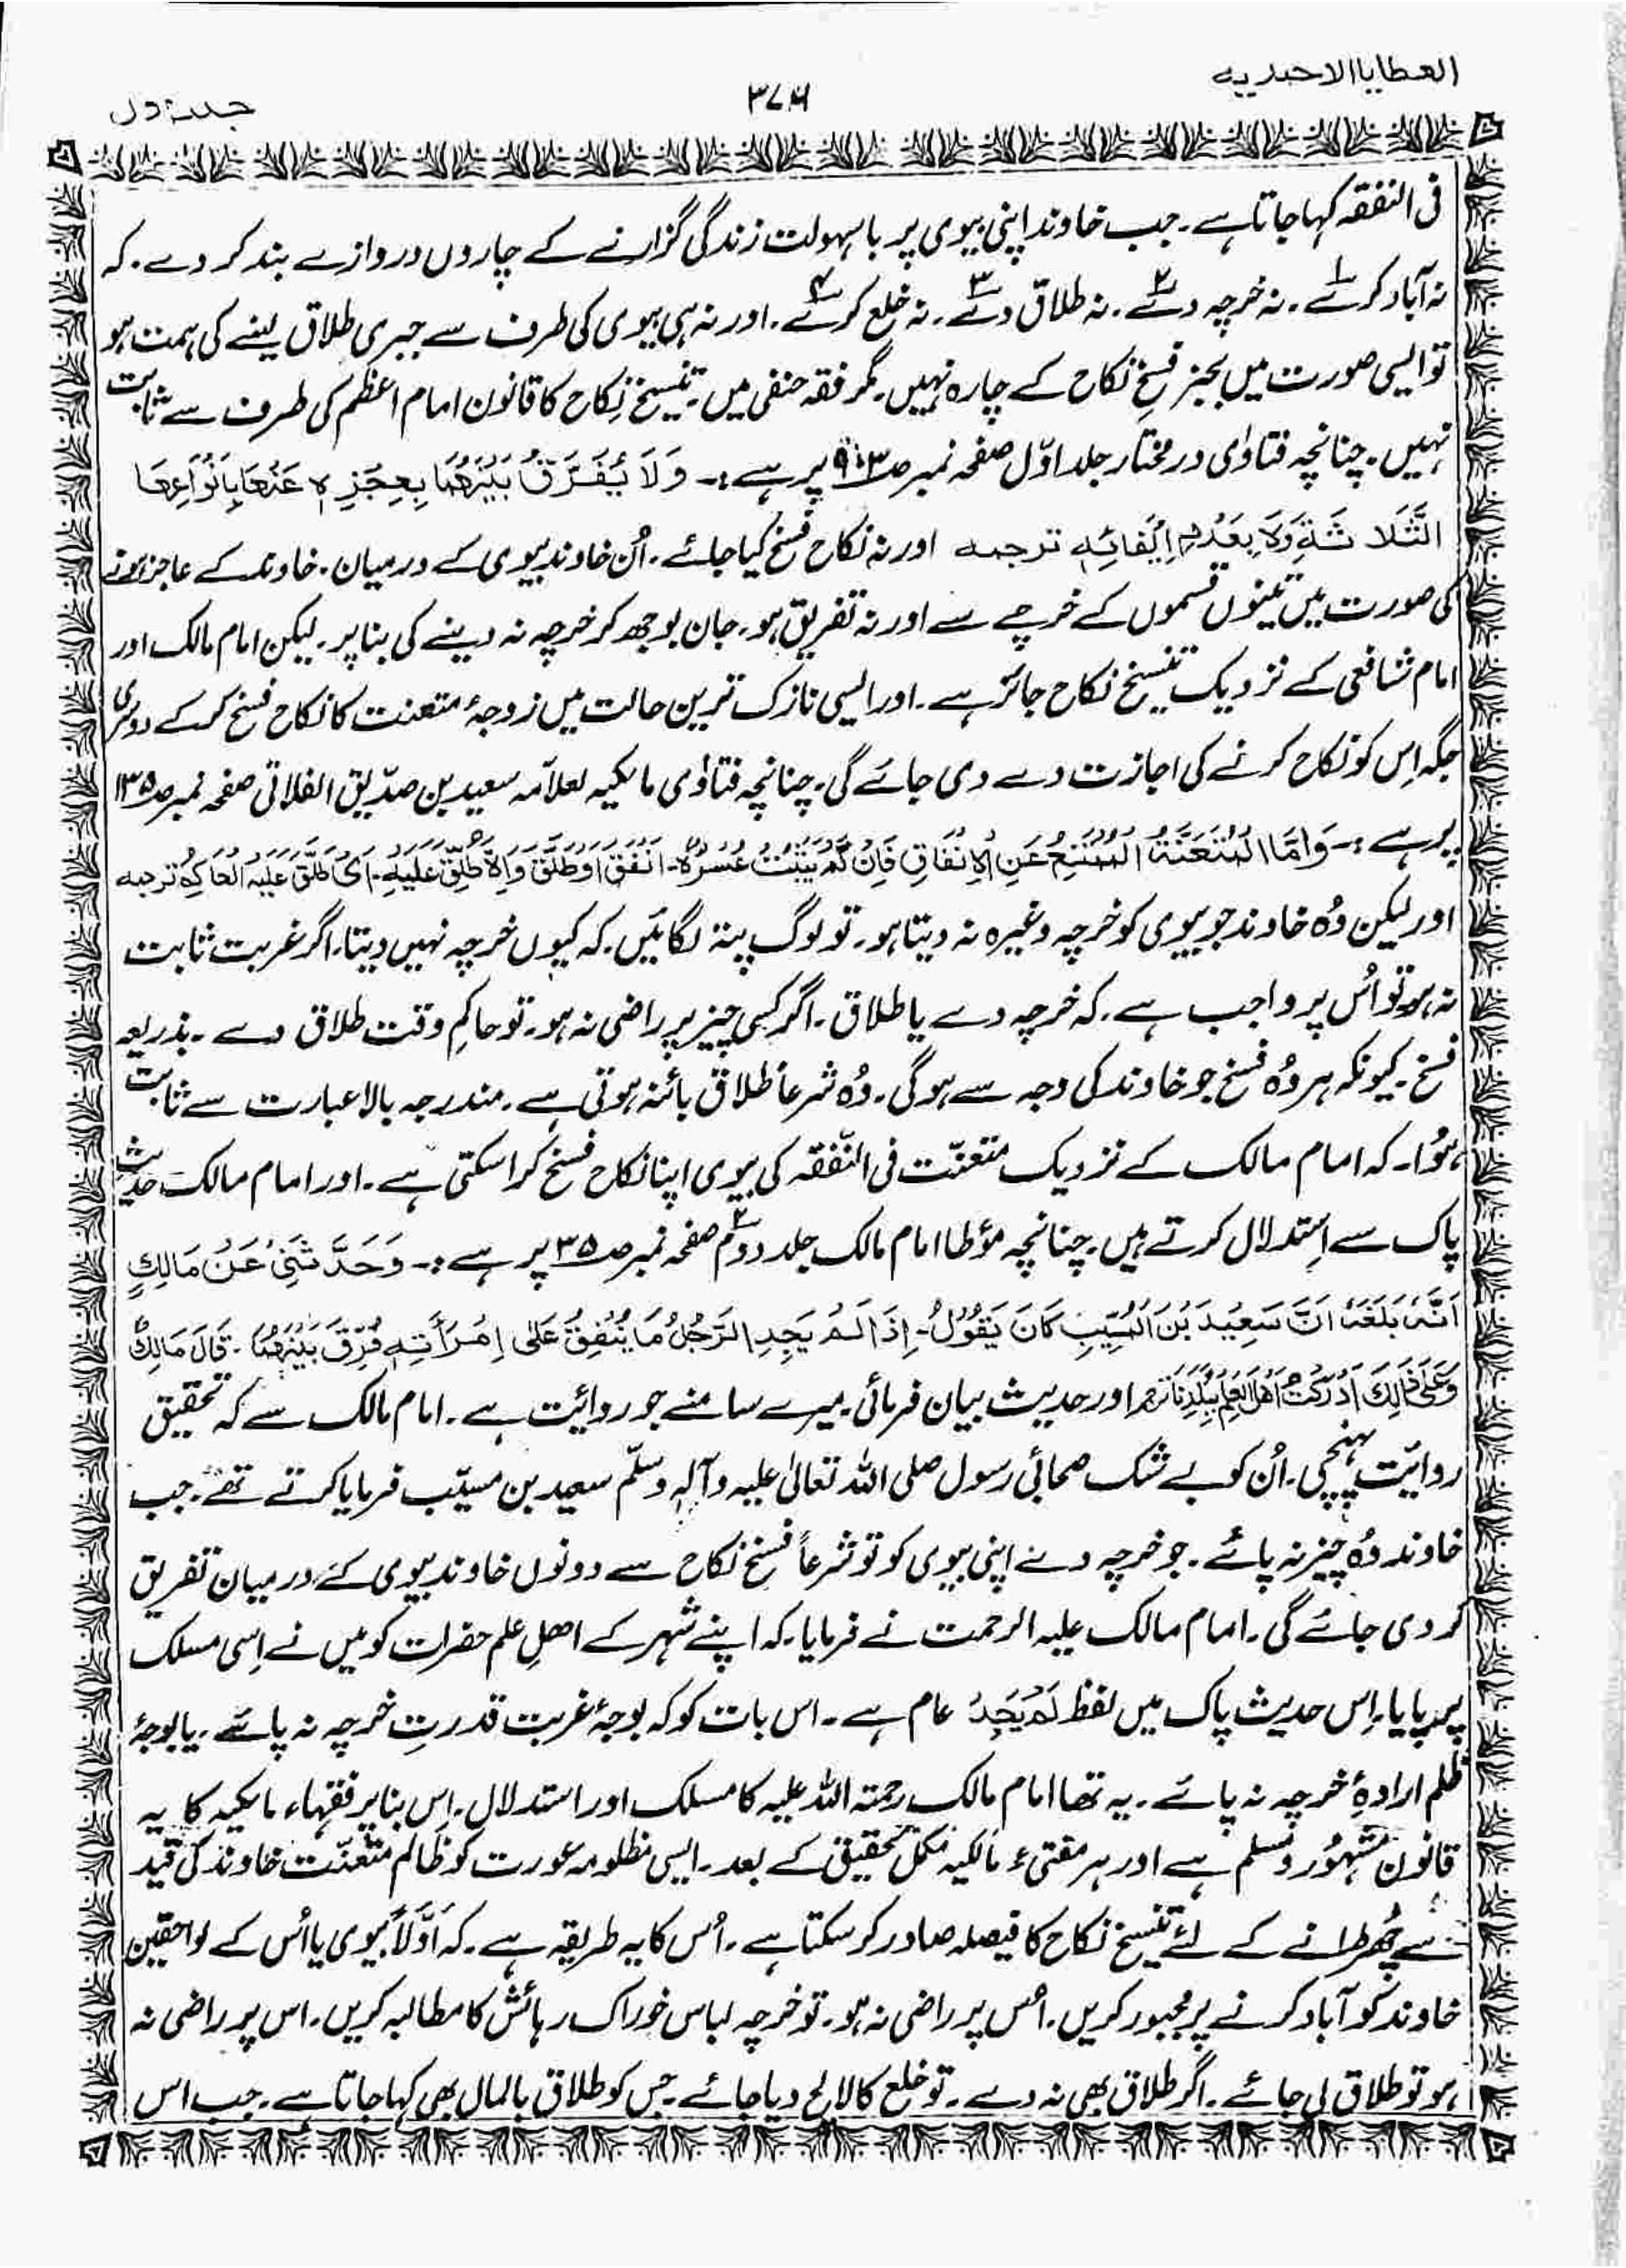 العطایا الاحمدیہ
۳۷۶
جلد اول
فی النفقہ کہا جاتا ہے۔ جب خاوند اپنی بیوی پر باسہولت زندگی گزارنے کے چاروں دروازے بند کر دے۔ کہ
نہ آباد کرے ۱۔ نہ خرچہ دے ۲۔ نہ طلاق دے ۳۔ نہ خلع کرے ۴۔ اور نہ ہی بیوی کی طرف سے جبری طلاق لینے کی ہمت ہو
تو ایسی صورت میں بجز فسخِ نکاح کے چارہ نہیں۔ مگر فقہ حنفی میں۔ تنسیخِ نکاح کا قانون امام اعظم کی طرف سے ثابت
نہیں۔ چنانچہ فتاوٰی درمختار جلد اوّل صفحہ نمبر صـ۹۰۳ پر ہے :۔ وَلَا یُفَرَّقُ بَیْنَھُمَا بِعِجْزِہٖ عَنْھَا بِاَنْوَاعِھَا
الثَّلَاثَۃِ وَلَا بِعَدْمِ اِیْفَائِہٖ ترجمہ اور نہ نکاح فسخ کیا جائے۔ اُن خاوند بیوی کے درمیان۔ خاوند کے عاجز ہونے
کی صورت میں تینوں قسموں کے خرچے سے اور نہ تفریق ہو۔ جان بوجھ کر خرچہ نہ دینے کی بنا پر۔ لیکن امام مالک اور
امام شافعی کے نزدیک تنسیخ نکاح جائز ہے۔ اور ایسی نازک ترین حالت میں زوجۂ متعنت کا نکاح فسخ کر کے دوسری
جگہ اِس کو نکاح کرنے کی اجازت دے دی جائے گی۔ چنانچہ فتاوٰی مالکیہ لعلاّمہ سعید بن صدّیق الفلاتی صفحہ نمبر صـ۱۳۵
پر ہے :۔ وَاَمَّا الْمُتَعَنَّتُ الْمُمْتَنِعُ عَنِ الْاِنْفَاقِ فَاِنْ لَّمْ یَثْبُتْ عُسْرُہٗ۔ اَنْفَقَ اَوْ طَلَّقَ وَاِلَّا طُلِّقَ عَلَیْہِ۔ اَیْ طَلَّقَ عَلَیْہِ الْحَاکِمُ ترجمہ
اور لیکن وُہ خاوند جو بیوی کو خرچہ وغیرہ نہ دیتا ہو۔ تو لوگ پتہ لگائیں۔ کہ کیوں خرچہ نہیں دیتا۔ اگر غربت ثابت
نہ ہو تو اُس پر واجب ہے۔ کہ خرچہ دے یا طلاق۔ اگر کسی چیز پر راضی نہ ہو۔ تو حاکمِ وقت طلاق دے۔ بذریعہ
فسخ۔ کیونکہ ہر وُہ فسخ جو خاوند کی وجہ سے ہوگی۔ وُہ شرعاً طلاق بائنہ ہوتی ہے۔ مندرجہ بالا عبارت سے ثابت
ہُوا۔ کہ امام مالک کے نزدیک متعنّت فی النّفقہ کی بیوی اپنا نکاح فسخ کرا سکتی ہے۔ اور امام مالک حدیث
پاک سے اِستدلال کرتے ہیں۔ چنانچہ مؤطا امام مالک جلد دوم ۲ صفحہ نمبر صـ۳۵ پر ہے :۔ وَحَدَّثَنِیْ عَنْ مَالِکٍ
اَنَّہٗ بَلَغَہٗ اَنَّ سَعِیْدَ بْنَ الْمُسَیّبِ کَانَ یَقُوْلُ۔ اِذَا لَمْ یَجِدِ الرَّجُلُ مَا یُنْفِقُ عَلٰی اِمْرَأَتِہٖ فُرِّقَ بَیْنَھُمَا۔ قَالَ مَالِکٌ
وَعَلٰی ذٰلِکَ اَدْرَکْتُ اَھْلَ الْعِلْمِ بِبَلَدِنَا ترجمہ اور حدیث بیان فرمائی۔ میرے سامنے جو روائیت ہے۔ امام مالک سے کہ تحقیق
روایّت پہنچی۔ اُن کو بے شک صحابیٔ رسول صلی اللہ تعالیٰ علیہ وآلہٖ وسلّم سعید بن مسیّب فرمایا کرتے تھے۔ جب
خاوند وُہ چیز نہ پائے۔ جو خرچہ دے اپنی بیوی کو تو شرعاً فسخِ نکاح سے دونوں خاوند بیوی کے درمیان تفریق
کر دی جائے گی۔ امام مالک علیہ الرحمت نے فرمایا۔ کہ اپنے شہر کے اھلِ علم حضرات کو میں نے اِسی مسلک
پر پایا۔ اِس حدیث پاک میں لفظ لَمْ یَجِدْ عام ہے۔ اس بات کو کہ بوجۂ غربت قدرتِ خرچہ نہ پائے۔ یا بوجۂ
ظلم ارادۂِ خرچہ نہ پائے۔ یہ تھا امام مالک رحمتہ اللہ علیہ کا مسلک اور استدلال۔ اِس بنا پر فقہاء مالکیہ کا یہ
قانون مشہُور و مُسلم ہے اور ہر مفتیء مالکیہ مکمل تحقیق کے بعد۔ ایسی مظلومہ عورت کو ظالم متعنّت خاوند کی قید
سے چُھڑانے کے لئے تنسیخ نکاح کا فیصلہ صادر کر سکتا ہے۔ اُس کا یہ طریقہ ہے۔ کہ اَوّلاً بیوی یا اُس کے لواحقین
خاوند کو آباد کرنے پر مجبور کریں۔ اُس پر راضی نہ ہو۔ تو خرچہ لباس خوراک رہائش کا مطالبہ کریں۔ اس پر راضی نہ
ہو تو طلاق لی جائے۔ اگر طلاق بھی نہ دے۔ تو خلع کا لالچ دیا جائے۔ جس کو طلاق بالمال بھی کہا جاتا ہے۔ جب اس